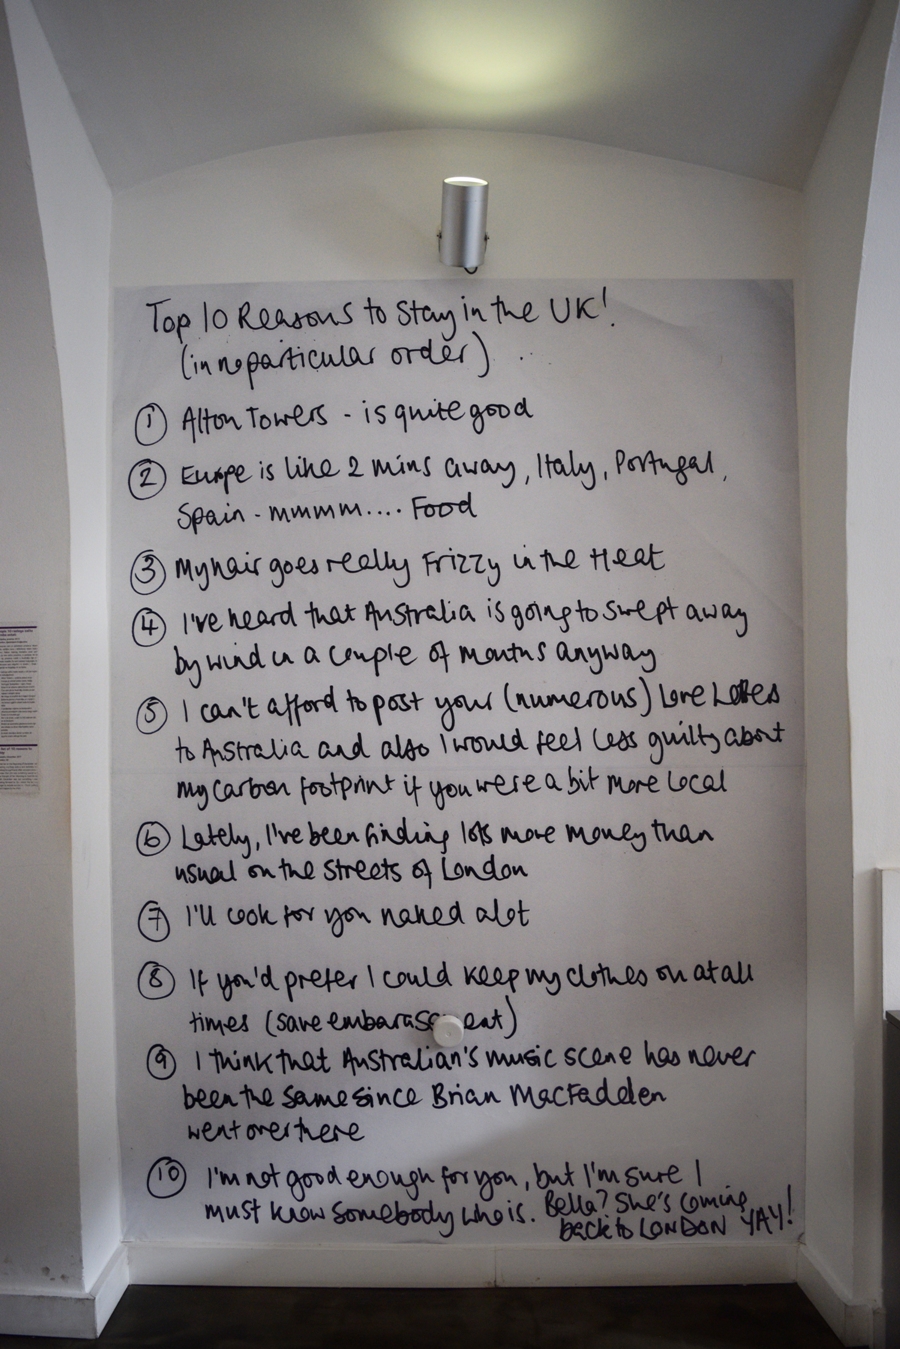 Top 10 Reasons to Stay in the UK!
(in no particular order)
① Alton Towers - is quite good
② Europe is like 2 mins away, Italy, Portugal,
Spain - mmmm.... Food
③ My hair goes really Frizzy in the Heat
④ I've heard that Australia is going to swept away
by wind in a couple of months anyway
⑤ I can't afford to post your (numerous) Love Lettes
to Australia and also I would feel less guilty about
my carbon footprint if you were a bit more local
⑥ Lately, I've been finding lots more money than
usual on the streets of London
⑦ I'll cook for you naked alot
⑧ If you'd prefer I could keep my clothes on at all
times (save
⑨ I think that Australian's music scene has never
been the same since Brian MacFadden
went over there
⑩ I'm not good enough for you, but I'm sure I
must know somebody who is. Bella? She's coming
back to LONDON YAY!